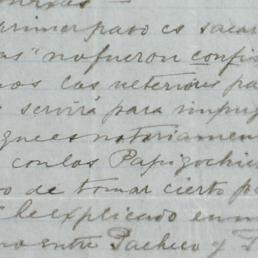 primer paso es sacar
as" no fueron confis
nos los ulteriores pa
servirá para impug
que es notoriamen
con los Papigochis
o de tomar cierto pa
le explicado en m
no entre Pacheco y T